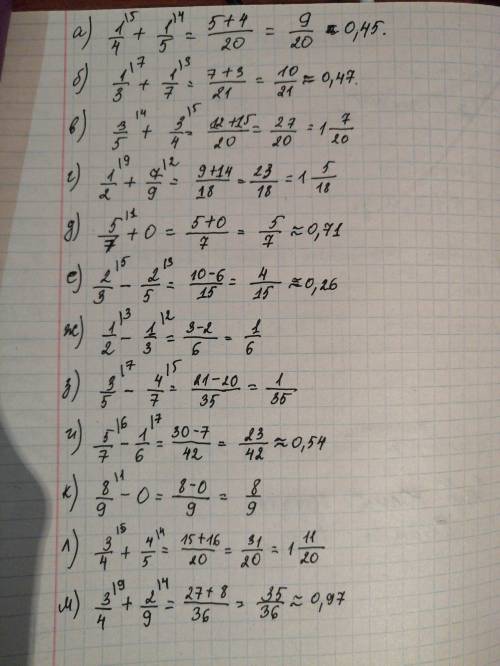 а) 1/4 |5 + 1/5 |4 = (5+4)/20 = 9/20 = 0,45.
б) 1/3 |7 + 1/7 |3 = (7+3)/21 = 10/21 ≈ 0,47.
в) 3/5 |4 + 3/4 |5 = (12+15)/20 = 27/20 = 1 7/20
г) 1/2 |9 + 7/9 |2 = (9+14)/18 = 23/18 = 1 5/18
д) 5/7 |1 + 0 = (5+0)/7 = 5/7 ≈ 0,71
е) 2/3 |5 - 2/5 |3 = (10-6)/15 = 4/15 ≈ 0,26
ж) 1/2 |3 - 1/3 |2 = (3-2)/6 = 1/6
з) 3/5 |7 - 4/7 |5 = (21-20)/35 = 1/35
и) 5/7 |6 - 1/6 |7 = (30-7)/42 = 23/42 ≈ 0,54
к) 8/9 |1 - 0 = (8-0)/9 = 8/9
л) 3/4 |5 + 4/5 |4 = (15+16)/20 = 31/20 = 1 11/20
м) 3/4 |9 + 2/9 |4 = (27+8)/36 = 35/36 ≈ 0,97